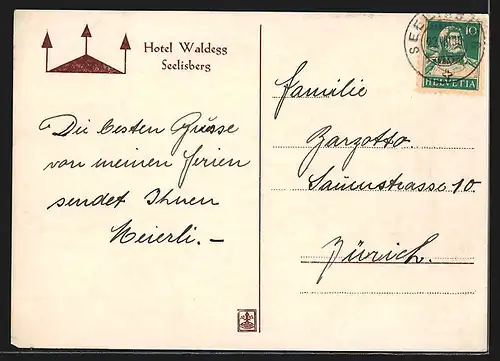 Hotel Waldegg
Seelisberg
Die besten Grüsse
von meinen Ferien
sendet Ihnen
Meierli. –
10
HELVETIA
Familie
Zargotto.
10.
Zürich.